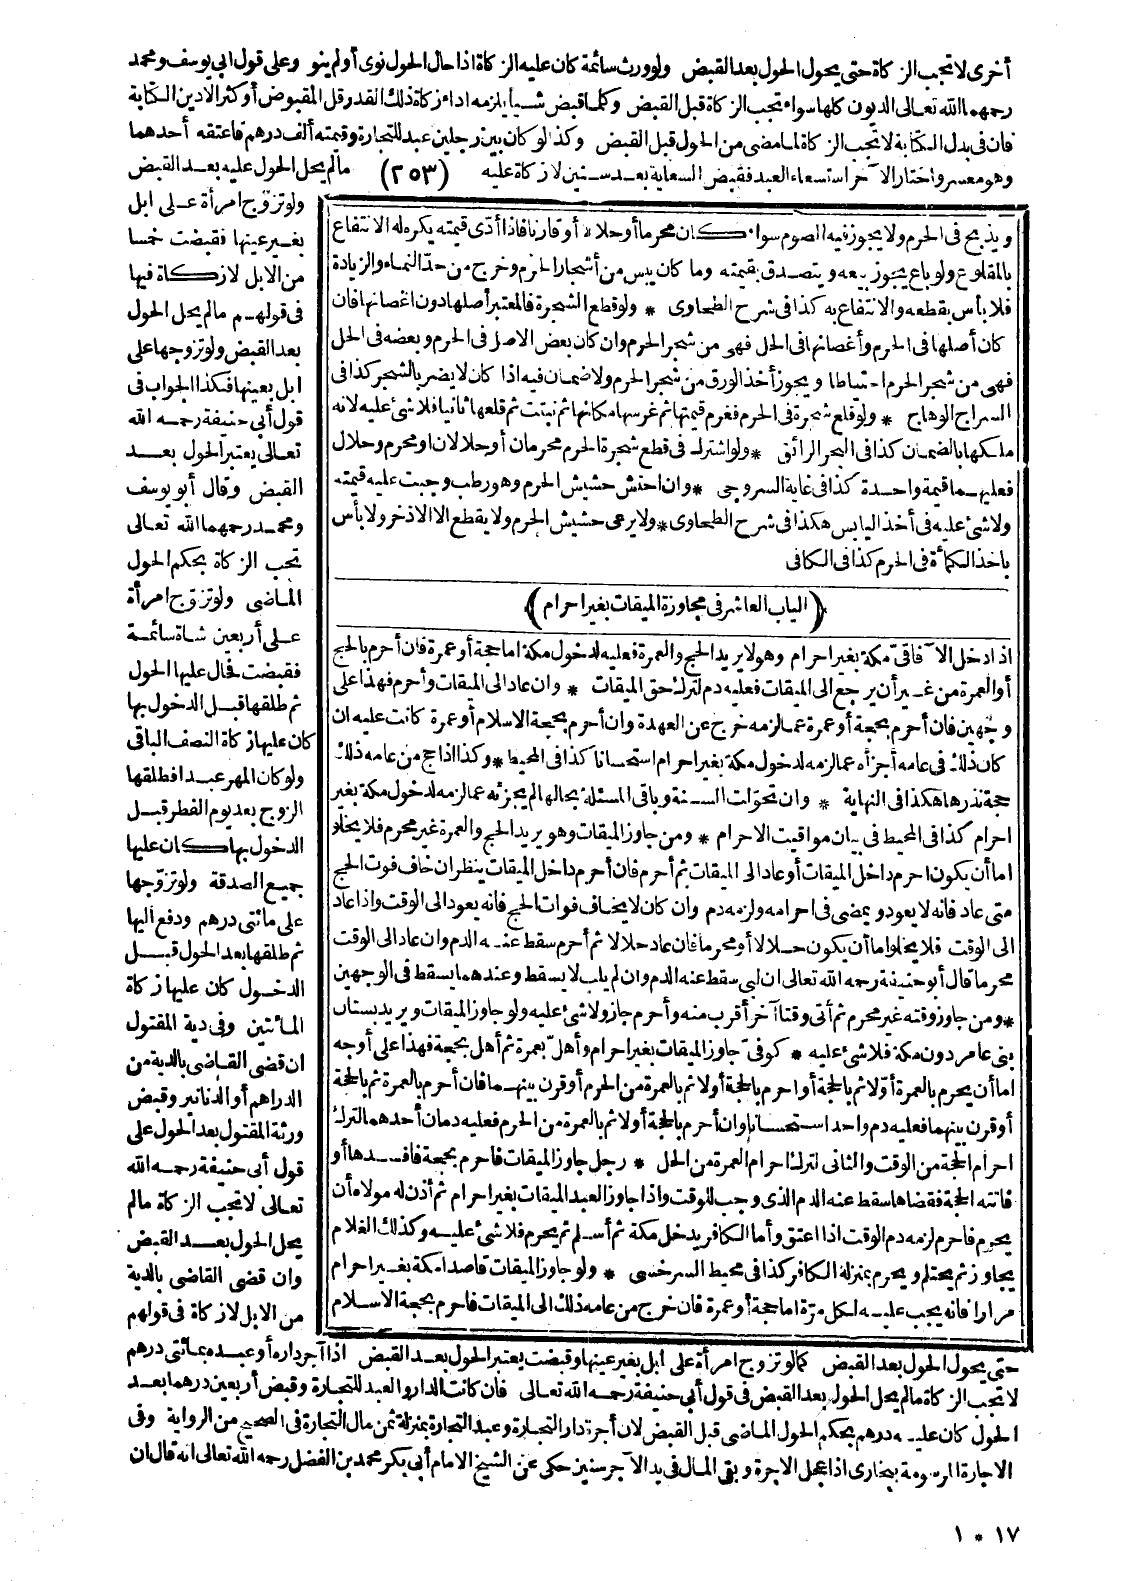 أخرى لا تجب الزكاة حتى يحول الحول بعد القبض ولو ورث سائمة كان عليه الزكاة اذا حال الحول نوى أولم ينو وعلى قول ابي يوسف ومحمد
رحمهما الله تعالى الديون كلها سواء تجب الزكاة قبل القبض وكلما قبض شيأ يلزمه اداء زكاة ذلك القدر قل المقبوض أو كثر الا دين الكتابة
فان فى بدل الكتابة لا تجب الزكاة لما مضى من الحول قبل القبض وكذا لو كان بين رجلين عبد للتجارة وقيمته ألف درهم فاعتقه أحدهما
وهو معسر واختار الآخر استسعاء العبد فقبض السعاية بعد سنتين لا زكاة عليه (٢٥٣) ما لم يحل الحول عليه بعد القبض
ولو تزوّج امرأة على ابل
بغير عينها فقبضت خمسا
من الابل لا زكاة فيها
فى قولهم ما لم يحل الحول
بعد القبض ولو تزوجها على
ابل بعينها فكذا الجواب فى
قول أبى حنيفة رحمه الله
تعالى يعتبر الحول بعد
القبض وقال أبو يوسف
ومحمد رحمهما الله تعالى
تجب الزكاة بحكم الحول
الماضى ولو تزوّج امرأة
على أربعين شاة سائمة
فقبضت فحال عليها الحول
ثم طلقها قبل الدخول بها
كان عليها زكاة النصف الباقى
ولو كان المهر عبدا فطلقها
الزوج بعد يوم الفطر قبل
الدخول بها كان عليها
جميع الصدقة ولو تزوّجها
على مائتى درهم ودفع اليها
ثم طلقها بعد الحول قبل
الدخول كان عليها زكاة
المائتين وفى دية المقتول
ان قضى القاضى بالدية من
الدراهم أو الدنانير وقبض
ورثة المقتول بعد الحول على
قول أبى حنيفة رحمه الله
تعالى لا تجب الزكاة ما لم
يحل الحول بعد القبض
وان قضى القاضى بالدية
من الابل لا زكاة فى قولهم
ويذبح فى الحرم ولا يجوز فيه الصوم سواء كان محرما أو حلالا أو قارنا فاذا أدّى قيمته يكره له الانتفاع
بالمقلوع ولو باع يجوز بيعه ويتصدق بقيمته وما كان يبس من أشجار الحرم وخرج من حدّ النماء والزيادة
فلا بأس بقطعه والانتفاع به كذا فى شرح الطحاوى * ولو قطع الشجرة فالمعتبر أصلها دون اغصانها فان
كان أصلها فى الحرم وأغصانها فى الحل فهى من شجر الحرم وان كان بعض الاصل فى الحرم وبعضه فى الحل
فهى من شجر الحرم احتياطا ويجوز أخذ الورق من شجر الحرم ولا ضمان فيه اذا كان لا يضر بالشجر كذا فى
السراج الوهاج * ولو قلع شجرة فى الحرم فغرم قيمتها ثم غرسها مكانها ثم نبتت ثم قلعها ثانيا فلا شئ عليه لانه
ملكها بالضمان كذا فى البحر الرائق * ولو اشترك فى قطع شجرة الحرم محرمان أو حلالان او محرم وحلال
فعليهما قيمة واحدة كذا فى غاية السروجى * وان احتش حشيش الحرم وهو رطب وجبت عليه قيمته
ولا شئ عليه فى أخذ اليابس هكذا فى شرح الطحاوى * ولا يرعى حشيش الحرم ولا يقطع الا الاذخر ولا بأس
باخذ الكمأة فى الحرم كذا فى الكافى
﴿الباب العاشر فى مجاوزة الميقات بغير احرام﴾
اذا دخل الآفاقىّ مكة بغير احرام وهو لا يريد الحج والعمرة فعليه لدخول مكة اما حجة أو عمرة فان أحرم بالحج
أو العمرة من غير أن يرجع الى الميقات فعليه دم لترك حق الميقات * وان عاد الى الميقات وأحرم فهذا على
وجهين فان أحرم بحجة أو عمرة عما لزمه خرج عن العهدة وان أحرم بحجة الاسلام أو عمرة كانت عليه ان
كان ذلك فى عامه أجزأه عما لزمه لدخول مكة بغير احرام استحسانا كذا فى المحيط * وكذا اذا حج من عامه ذلك
حجة نذرها هكذا فى النهاية * وان تحوّلت السنة وباقى المسئلة بحالها لم يجزئه عما لزمه لدخول مكة بغير
احرام كذا فى المحيط فى بيان مواقيت الاحرام * ومن جاوز الميقات وهو يريد الحج والعمرة غير محرم فلا يخلو
اما أن يكون احرم داخل الميقات أو عاد الى الميقات ثم أحرم فان أحرم داخل الميقات ينظر ان خاف فوت الحج
متى عاد فانه لا يعود ويمضى فى احرامه ولزمه دم وان كان لا يخاف فوات الحج فانه يعود الى الوقت واذا عاد
الى الوقت فلا يخلوا ما أن يكون حلالا أو محرما فان عاد حلالا ثم أحرم سقط عنه الدم وان عاد الى الوقت
محرما قال أبو حنيفة رحمه الله تعالى ان لبى سقط عنه الدم وان لم يلب لا يسقط وعندهما يسقط فى الوجهين
* ومن جاوز وقته غير محرم ثم أتى وقتا آخر أقرب منه وأحرم جاز ولا شئ عليه ولو جاوز الميقات ويريد بستان
بنى عامر دون مكة فلا شئ عليه * كوفىّ جاوز الميقات بغير احرام وأهلّ بعمرة ثم أهل بحجة فهذا على أوجه
اما أن يحرم بالعمرة أوّلا ثم بالحجة أو احرم بالحجة أولا ثم بالعمرة من الحرم أو قرن بينهما فان أحرم بالعمرة ثم بالحجة
أو قرن بينهما فعليه دم واحد استحسانا وان أحرم بالحجة أولا ثم بالعمرة من الحرم فعليه دمان أحدهما لترك
احرام الحجة من الوقت والثانى لترك احرام العمرة من الحل * رجل جاوز الميقات فاحرم بحجة فافسدها أو
فاتته الحجة فقضاها سقط عنه الدم الذى وجب للوقت واذا جاوز العبد الميقات بغير احرام ثم أذن له مولاه أن
يحرم فاحرم لزمه دم الوقت اذا اعتق وأما الكافر يدخل مكة ثم أسلم ثم يحرم فلا شئ عليه وكذلك الغلام
يجاوز ثم يحتلم ويحرم بمنزلة الكافر كذا فى محيط السرخسى * ولو جاوز الميقات قاصدا مكة بغير احرام
مرارا فانه يجب عليه لكل مرّة اما حجة أو عمرة فان خرج من عامه ذلك الى الميقات فاحرم بحجة الاسلام
حتى يحول الحول بعد القبض كما لو تزوج امرأة على ابل بغير عينها وقبضت يعتبر الحول بعد القبض اذا آجر داره أو عبده بمائتى درهم
لا تجب الزكاة ما لم يحل الحول بعد القبض فى قول أبى حنيفة رحمه الله تعالى فان كانت الدار والعبد للتجارة وقبض أربعين درهما بعد
الحول كان عليه درهم بحكم الحول الماضى قبل القبض لان أجرة دار التجارة وعبد التجارة بمنزلة ثمن مال التجارة فى الصحيح من الرواية وفى
الاجارة المرسومة ببخارى اذا عجل الاجرة وبقى المال فى يد الآجر سنين حكى عن الشيخ الامام أبى بكر محمد بن الفضل رحمه الله تعالى انه قال ان
١ * ١٧